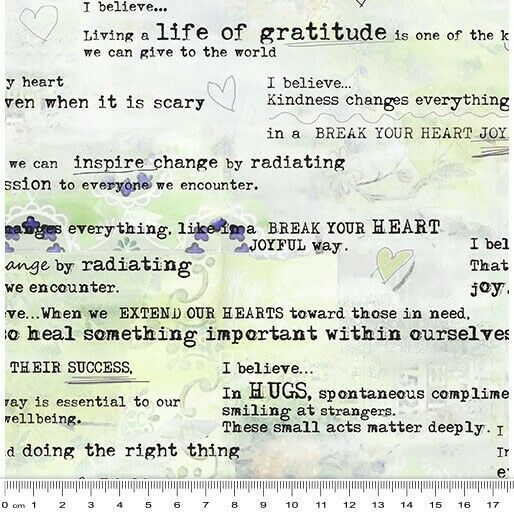 I believe...
Living a life of gratitude is one of the k
we can give to the world
y heart
ven when it is scary
I believe...
Kindness changes everything
in a BREAK YOUR HEART JOY
we can inspire change by radiating
ssion to everyone we encounter.
hanges everything, like in a BREAK YOUR HEART
JOYFUL way.
ange by radiating
we encounter.
I bel
That
joy.
eve...When we EXTEND OUR HEARTS toward those in need,
so heal something important within ourselves
THEIR SUCCESS,
way is essential to our
wellbeing.
d doing the right thing
I believe...
In HUGS, spontaneous complime
smiling at strangers.
These small acts matter deeply.
I
In
e
0 cm 1 2 3 4 5 6 7 8 9 10 11 12 13 14 15 16 17